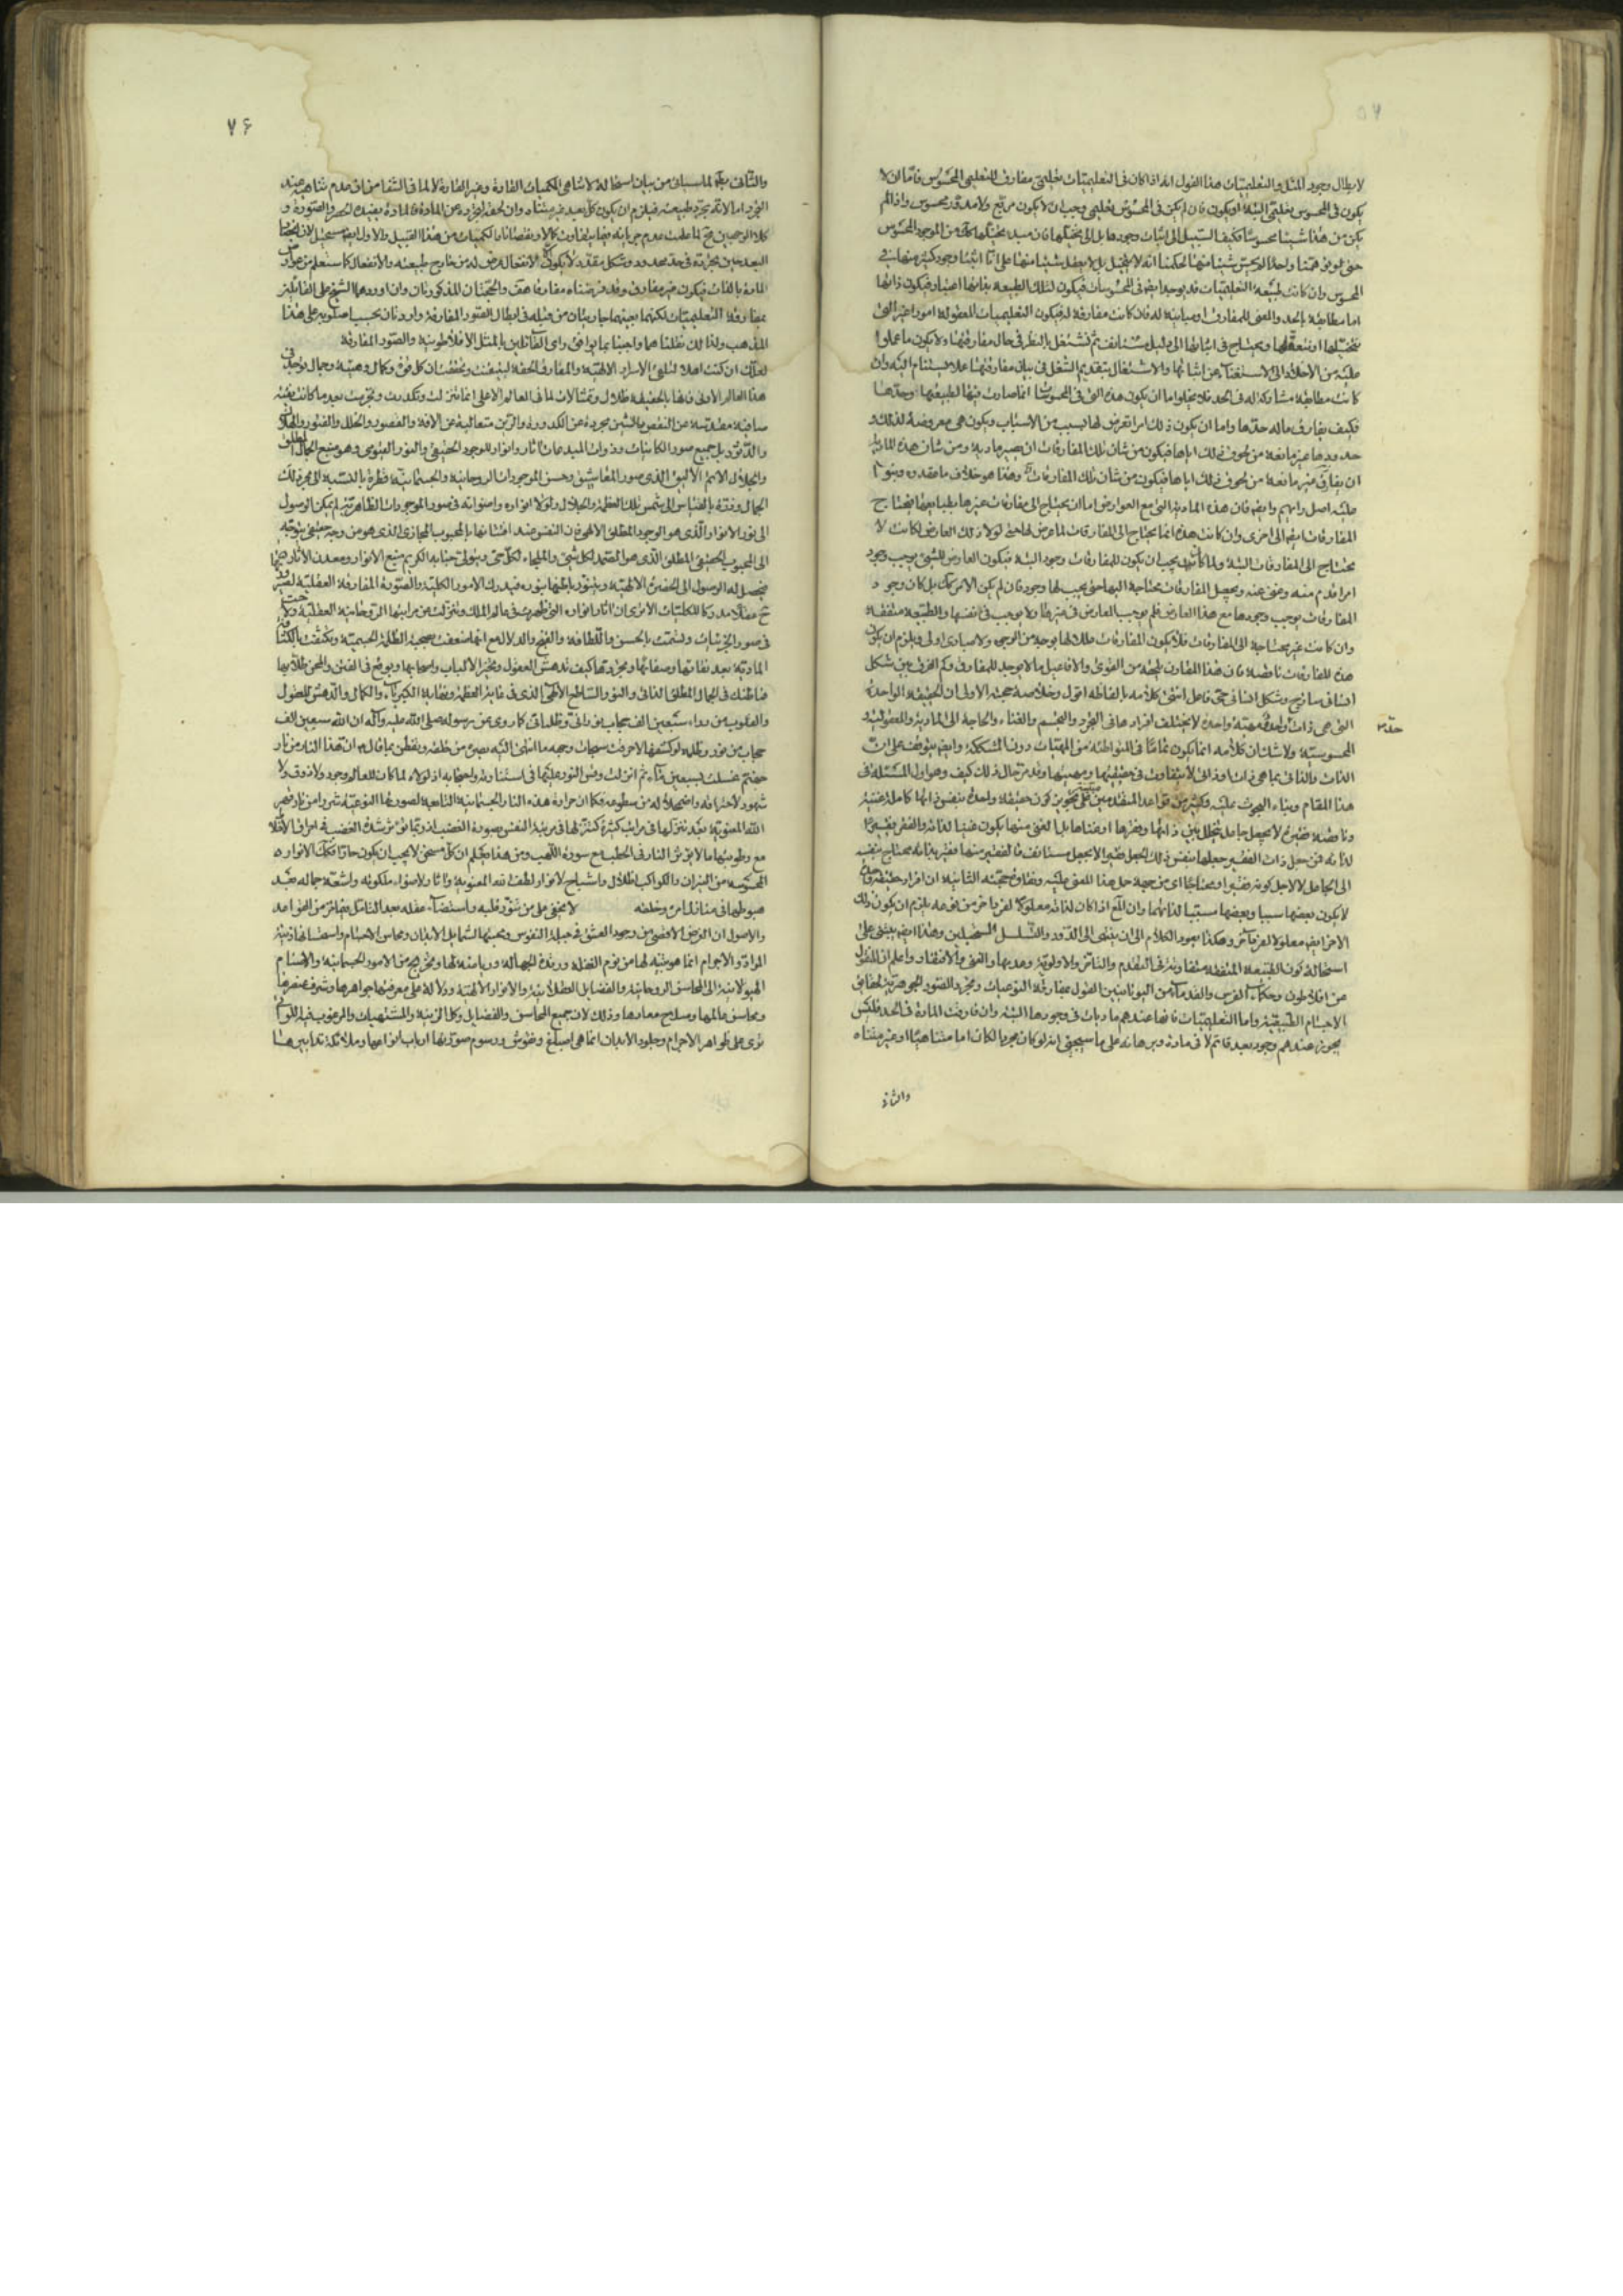 لابطال وجود المثل والتعليميات هذا القول انه اذا كان فى التعليميات تعليمى مفارق للتعليمى المحسوس فاما ان لا
يكون فى المحسوس تعليمى البتة او يكون فان لم يكن فى المحسوس تعليمى وجب ان لا يكون مربع ولا مدور محسوس واذا لم
يكن من هذا شيئا محسوسا فكيف السبيل الى اثبات وجودها بل الى تخيلها فان مبدء تخيلها من الموجود المحسوس
حتى لو توهمنا واحدا لم يحس شيئا منها لحكمنا انه لا يتخيل بل لا يعقل شيئا منها على انا اثبتنا وجود كثير منها فى
المحسوس وان كانت طبيعة التعليميات قد يوجد ايضا فى المحسوسات فيكون لتلك الطبيعة بذاتها اعتبار فيكون ذاتها
اما مطابقة بالحد والمعنى للمفارق او مباينة له فان كانت مفارقة له فيكون التعليميات المعقولة امورا غير التى
نتخيلها او نتعقلها ونحتاج فى اثباتها الى دليل مستانف ثم نشتغل بالنظر فى حال مفارقتها ولا يكون ما عملوا
عليه من الاخلاد الى الاستغناء عن اثباتها والاشتغال بتقديم الشغل فى بيان مفارقتها عملا يستنام اليه وان
كانت مطابقة مشاركة له فى الحد فلا يخلوا اما ان يكون هذه التى فى المحسوسات انما صارت فيها لطبيعتها وحدها
فكيف يفارق ماله حدها واما ان يكون ذلك امرا تعرض لها بسبب من الاسباب ويكون هى معروضة لذلك و
حدودها غير مانعة من لحوق ذلك اياها فيكون من شان تلك المفارقات ان يصير مادية ومن شان هذه المادية
ان يفارق وهذا هو خلاف ما عقدوه وبنوا
عليه اصل رايهم وايضا فان هذه المادية التى مع العوارض اما ان يحتاج الى مفارقات غيرها بطبايعها فيحتاج
المفارقات ايضا الى اخرى وان كانت هذه انما يحتاج الى المفارقات لما عرض لها حتى لولا ذلك العارض لكانت لا
يحتاج الى المفارقات البتة ولما كان يجب ان يكون للمفارقات وجود البتة فيكون العارض للشىء يوجب وجود
امر اقدم منه وغنى عنه ويجعل المفارقات محتاجة اليها حتى يجب لها وجود فان لم يكن الامر كك بل كان وجود
المفارقات يوجب وجودها مع هذا العارض فلم يوجب العارض فى غيرها ولا يوجب فى انفسها والطبيعة متفقة
وان كانت غير محتاجة الى المفارقات فلا يكون المفارقات عللا لها بوجه من الوجوه ولا مبادى اولى ويلزم ان يكون
هذه المفارقات ناقصة فان هذا المقارن يلحقه من القوى والافاعيل ما لا يوجد للمفارق وكم الفرق بين شكل
انسانى ساذج وشكل انسانى حى فاعل انتهى كلامه بالفاظه اقول وخلاصة حجته الاولى ان الحقيقة الواحدة
التى هى ذات واحدة لا يختلف افرادها فى التجرد والتجسم والغناء والحاجة الى المادية والمعقولية و
المحسوسية ولا شك ان كلامه انما يكون تماما فى المتواطئة من المهيات دون المشككة وايضا يتوقف على ان
الذات والذاتى بما هى ذات وذاتى لا يتفاوت فى حقيقتها ومهيتها وقد مر حال ذلك كيف وهو اول المسئلة فى
هذا المقام وبناء البحوث عليه وكثير من قواعد المتقدمين على تجويز كون حقيقة واحدة بنفس ذاتها كاملة غنية
وناقصة فقيرة لا بجعل جاعل يتخلل بين ذاتها وفقرها او غناها بل الغنى منها يكون غنيا لذاته والفقر فقيرا
لذاته فمن جعل ذات الفقير جعلها بنفس ذلك الجعل فقيرا لا بجعل مستانف فالفقير منها فقير بذاته محتاج بنفسه
الى الجاعل لا لاجل كونه فقيرا ومحتاجا
لا يكون بعضها سببا وبعضها مسببا لذاتهما وان اذا كان لذاته معلولا لفرد اخر من نوعه يلزم ان يكون ذلك
الاخر ايضا معلولا لفرد اخر وهكذا يعود الكلام الى ان ينتهى الى الدور والتسلسل المستحيلين وهذا ايضا يبتنى على
استحالة كون الطبيعة المتفقة متفاوتة فى التقدم والتاخر والاولوية وعدمها والغنى والافتقار واعلم ان المنقول
عن افلاطون وحكماء الفرس والقدماء من اليونانيين القول بمفارقة النوعيات وتجرد الصور الجوهرية لحقايق
الاجسام الطبيعية واما التعليميات فانها عندهم ماديات فى وجودها البتة وان فارقت المادة فى الحد فليس
يجوز عندهم وجود بعد قائم لا فى مادة وبرهانه على ما سيجىء انه لو كان مجردا لكان اما متناهيا او غير متناه
والثانى
٧۶
والثانى بط لما سياتى من بيان استحالة لا تناهى الكميات القارة وغير القارة لا لما فى الشفا من ان عدم تناهيه عند
التجرد اما لانه مجرد طبيعته فيلزم ان يكون كل بعد غير متناه وان لحقه لتجرده عن المادة فالمادة يفيد الحصر والصورة و
كلا الوجهين مح لما علمت عدم جريانه فيما يتفاوت كمالا ونقصانا والكميات من هذا القبيل والاول ايضا مستحيل لان انحصار
البعد حين تجرده فى حد محدود وشكل مقدر لا يكون الا لانفعال عرض له من خارج طبيعته والانفعال كما ستعلم من عوارض
المادة بالذات فيكون غير مفارق وقد فرضناه مفارقا هف والحجتان المذكورتان وان اوردهما الشيخ على القائلين
بمفارقة التعليميات لكنهما بعينهما جاريتان من قبله فى ابطال الصور المفارقة واردتان بحسب اسلوبه على هذا
المذهب ولذا لك نقلناهما واجبنا بما يوافق راى القائلين بالمثل الافلاطونية والصور المفارقة
لعلك ان كنت اهلا لتلقى الاسرار الالهية والمعارف الحقة لتيقنت وتحققت ان كل قوة وكمال وهيئة وجمال توجد فى
هذا العالم الادنى فانها بالحقيقة ظلال وتمثالات لما فى العالم الاعلى انما تنزلت وتكدرت وتجرمت بعد ما كانت نقية
صافية مقدسة عن النقص والشين مجردة عن الكدورة والرين متعالية عن الافة والقصور والخلل والفتور والهلاك
والدثور بل جميع صور الكائنات وذوات المبدعات اثار وانوار للوجود الحقيقى والنور القيومى وهو منبع الجمال المطلق
والجلال الاتم الاليق الذى صور المعاشيق وحسن الموجودات الروحانية والجسمانية قطرة بالنسبة الى بحر ذلك
الجمال وذرة بالقياس الى شمس تلك العظمة والجلال ولولا انواره واضوائه فى صور الموجودات الظاهرية لم يمكن الوصول
الى نور الانوار الذى هو الوجود المطلق الالهى فان النفس عند افتتانها بالمحبوب المجازى الذى هو من وجه حقيقى يتوجه
الى المحبوب الحقيقى المطلق الذى هو الصمد لكل شىء والملجاء لكل حى ويتولى جنابه الكريم منبع الانوار ومعدن الاثار
فيحصل له الوصول الى الحضرة الالهية ويتنور باطنها بنوره فيدرك الامور الكلية والصورة المفارقة العقلية لصيرورتها
ح عقلا مدركا للكليات الا ترى ان اثار انواره التى ظهرت فى عالم الملك وتنزلت عن مراتبها الروحانية العقلية ولاحت
فى صور الجزئيات واتسمت بالحسن واللطافة والغنج والدلال مع انها ضعفت بصحبة الظلمة الجسمية وتكثفت بالكثافة
المادية بعد نقائها وصفائها وتجردها كيف تدهش العقول وتحير الالباب واصحابها ويوقع فى الفتن والمحن طلابها
فما ظنك فى الجمال المطلق الذاتى والنور الساطع الالهى الذى فى غاية العظمة ونهاية الكبرياء والكمال والدهش للعقول
والقلوب من وراء سبعين الف حجاب نورانى وظلمانى كما روى عن رسوله صلى الله عليه واله ان لله سبعين الف
حجاب من نور وظلمة لو كشفها لاحرقت سبحات وجهه ما انتهى اليه بصره من خلقه وتفطن بما قال ان هذا النار من نار
جهنم غسلت بسبعين ماء ثم انزلت
شهود لاحتراقه واضمحلاله من سطوعه فكما ان حرارة هذه النار الجسمانية التابعة لصورتها النوعية شرر من نار قهر
الله المعنوية بعد تنزلها فى مراتب كثيرة كتنزلها فى مرتبة النفس بصورة الغضب اذ ربما تؤثر شدة الغضب فى احراق الاخلاط
مع رطوبتها ما لا يؤثر النار فى الحطب مع سورة اللهب ومن هذا يعلم ان كل مسخن لا يجب ان يكون حارا فكك الانوار
المحسوسة من النيران والكواكب اظلال واشباح لانوار لطف ذاته المعنوية واثار لاضواء ملكوته واشعة جماله بعد
هبوطها فى منازل امره وخلقه لا يخفى على من تنور قلبه واستضاء عقله بعد التامل فيما مر من القواعد
والاصول ان الغرض الاقصى من وجود العشق فى جبلة النفوس ومحبتها لشمايل الابدان ومحاسن الاجسام واستحسانها زينة
المواد والاجرام انما هو تنبيه لها من نوم الغفلة ورقدة الجهالة ورياضة لها وتخريج من الامور الجسمانية والاصنام
الهيولانية الى المحاسن الروحانية والفضايل العقلانية والانوار الالهية ودلالة على معرفتها جواهرها وشرف عنصرها
ومحاسن عالمها وصلاح معادها وذلك لان جميع المحاسن والفضايل وكل الزينة والمشتهيات والمرغوب فيها اللواتى
ترى على ظواهر الاجرام وجلود الابدان انما هى اصباغ ونقوش ورسوم صورتها ارباب انواعها وملائكة تدابيرها